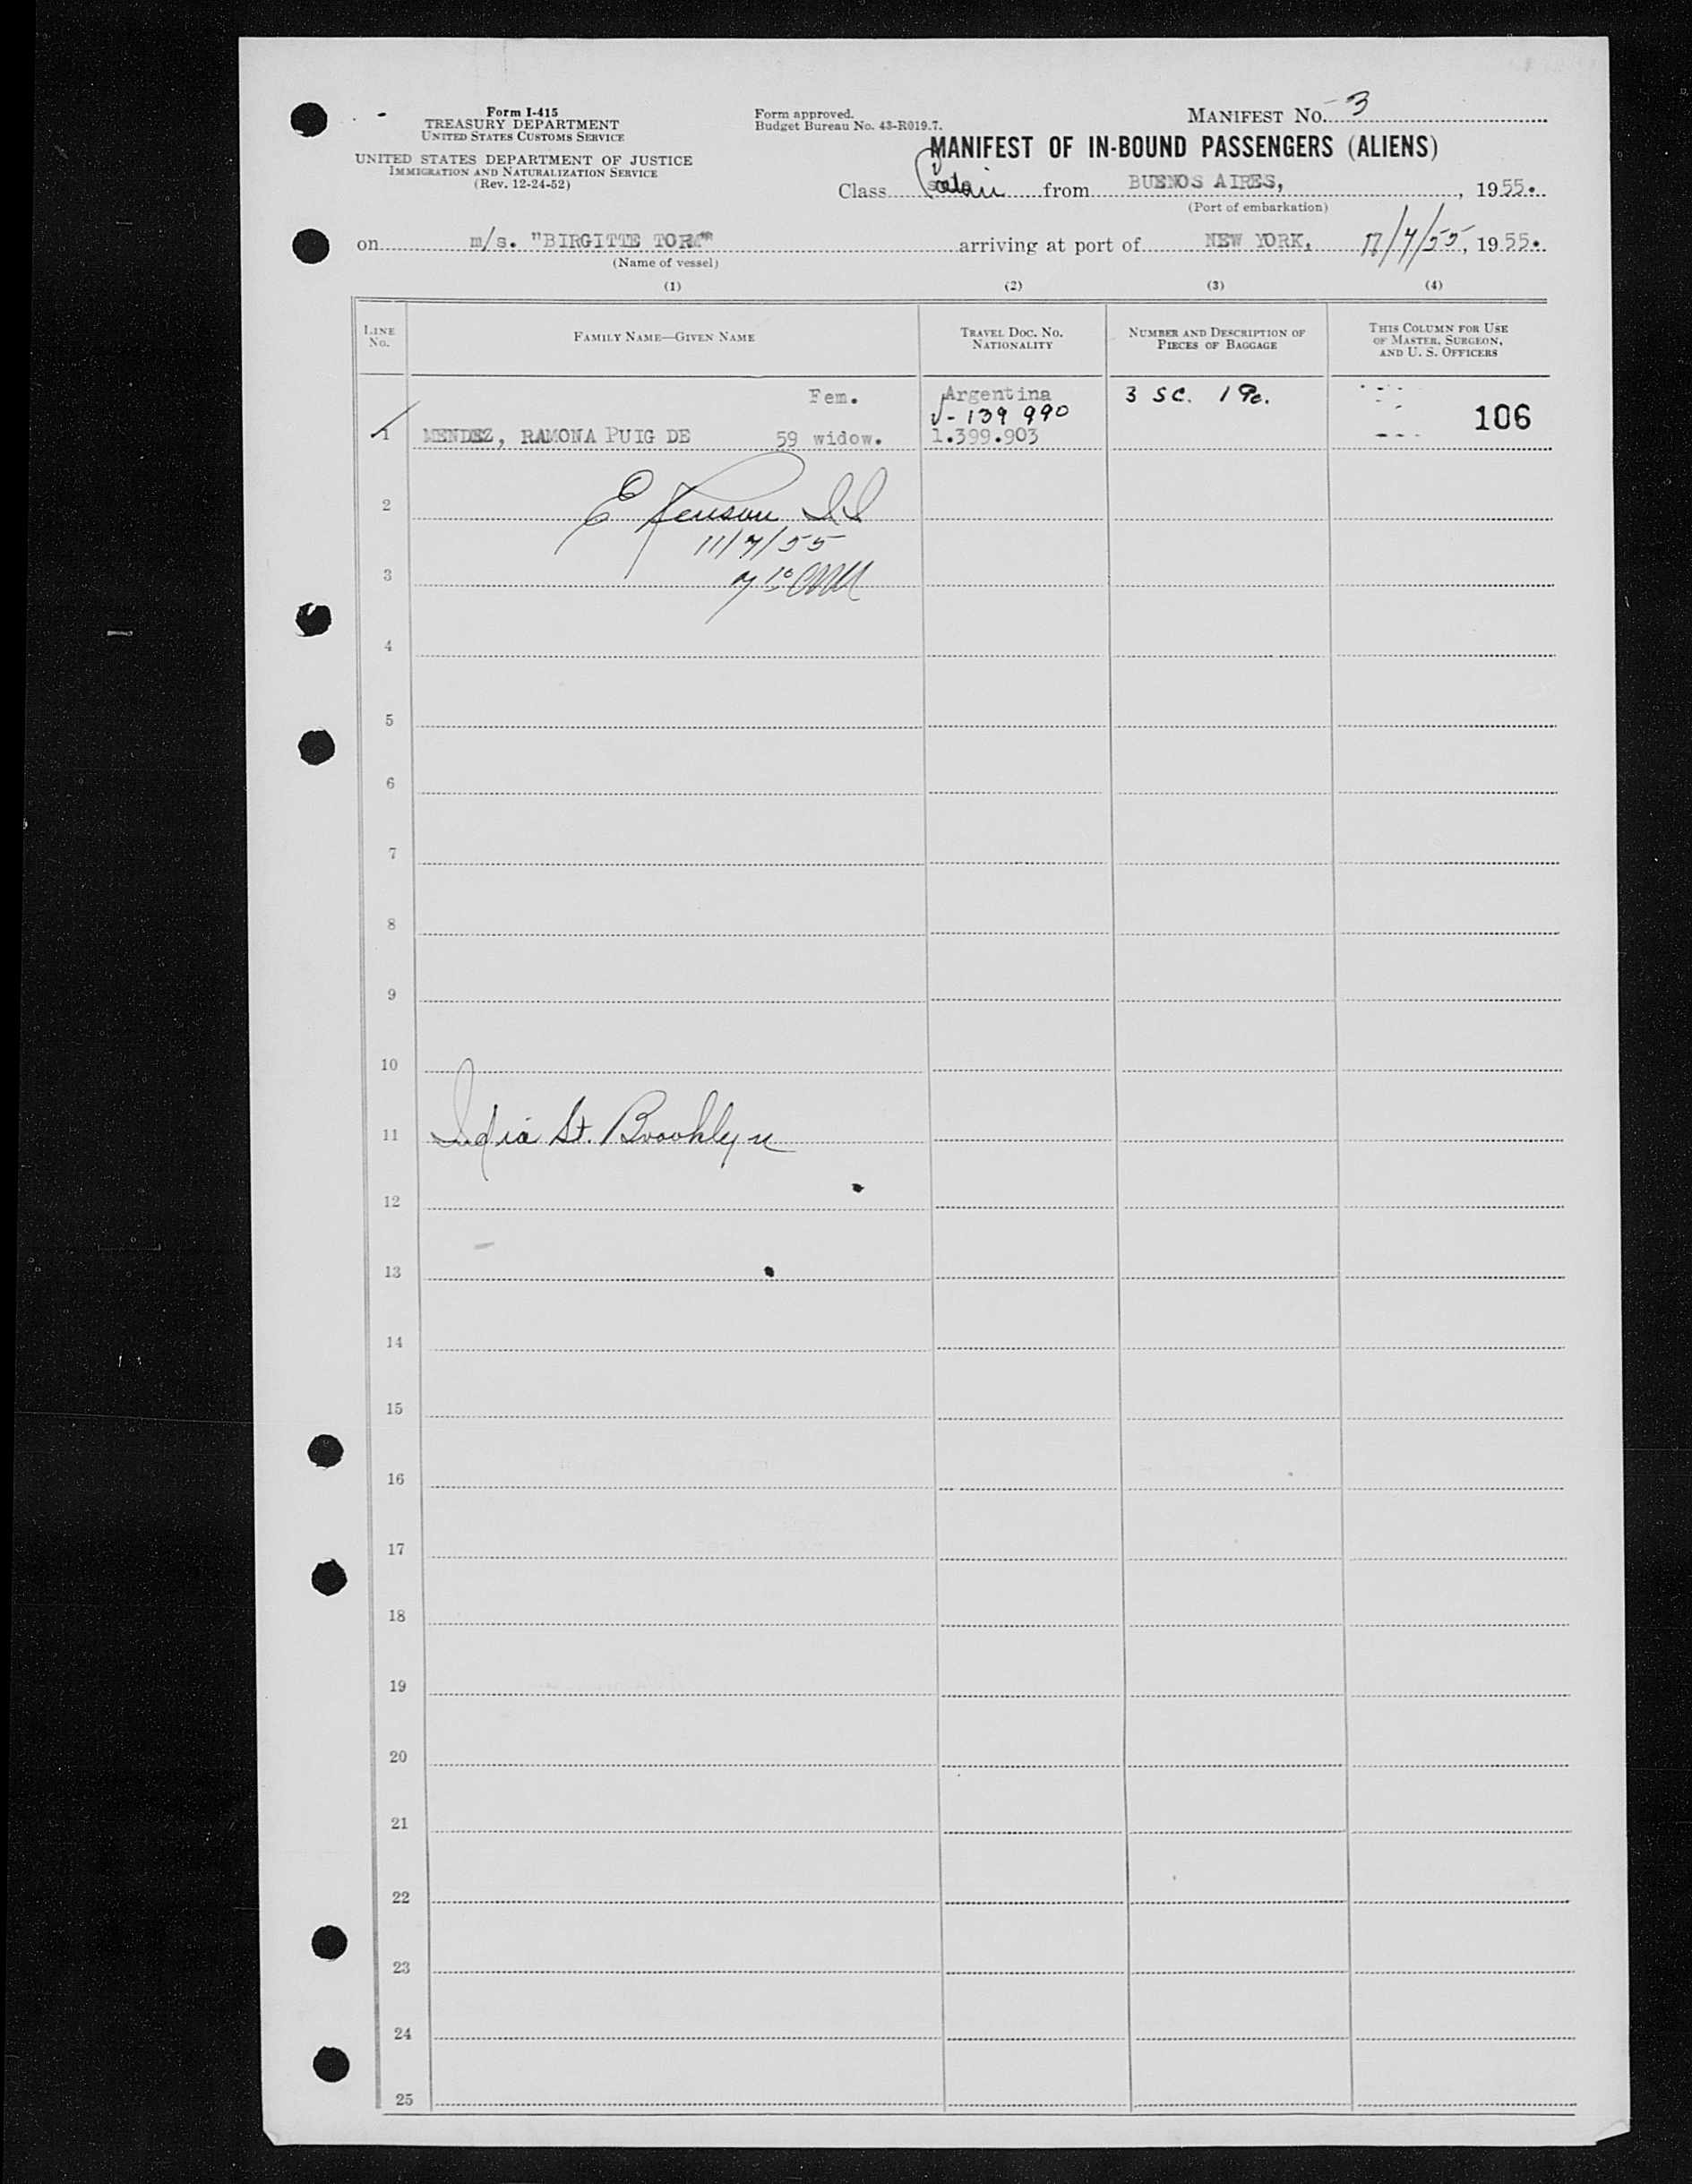 Form I-415
TREASURY DEPARTMENT
UNITED STATES CUSTOMS SERVICE
UNITED STATES DEPARTMENT OF JUSTICE
IMMIGRATION AND NATURALIZATION SERVICE
(Rev. 12-24-52)
Form approved.
Budget Bureau No. 43-R019.7.
MANIFEST No. 3
MANIFEST OF IN-BOUND PASSENGERS (ALIENS)
Class from BUENOS AIRES, , 1955.
(Port of embarkation)
on m/s. "BIRGITTE TORM" arriving at port of NEW YORK, /7/55, 1955.
(Name of vessel)
(1) (2) (3) (4)
LINE No. FAMILY NAME—GIVEN NAME TRAVEL DOC. No. NATIONALITY NUMBER AND DESCRIPTION OF PIECES OF BAGGAGE THIS COLUMN FOR USE OF MASTER, SURGEON, AND U. S. OFFICERS
Fem. Argentina 3 SC. 1 Pc.
V-139 990 106
1 MENDEZ, RAMONA PUIG DE 59 widow. 1.399.903
2
11/7/55
3
4
5
6
7
8
9
10
11 India St. Brooklyn
12
13
14
15
16
17
18
19
20
21
22
23
24
25